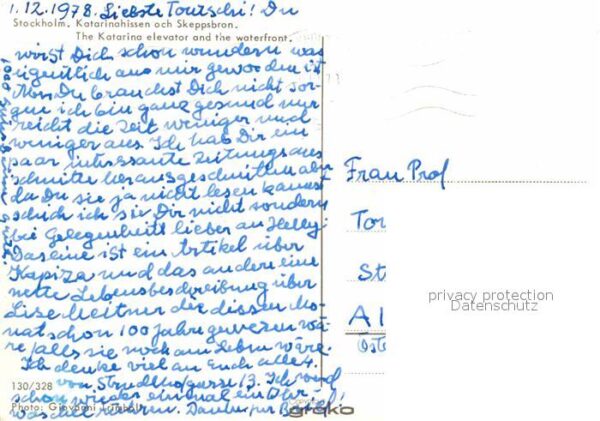 1.12.1978. Liebste Toutschi! Du
Stockholm. Katarinahissen och Skeppsbron.
The Katarina elevator and the waterfront.
wirst Dich schon wundern was
eigentlich aus mir geworden ist
Non Du brauchst Dich nicht sor-
gen ich bin ganz gesund nur
reicht die Zeit weniger und
weniger aus. Ich hab Dir ein
paar interessante Zeitungsaus
schnitte herausgeschnitten aber
da Du sie ja nicht lesen kannst
schick ich sie Dir nicht sondern
bei Gelegenheit lieber an Helly.
Das eine ist ein Artikel über
Kapiza und das andere eine
nette Lebensbeschreibung über
Lise Meitner die diesen Mo-
nat schon 100 Jahre gewesen wä
re falls sie noch am Leben wäre.
Ich denke viel an Euch alle 4
von Strudlhofgasse 13. Ich
schon wieder einmal ein
was
1000
Frau Prof
Tor
St
A 1
Öste
130/328
Photo: Giovanni Trimboli
grako
privacy protection
Datenschutz